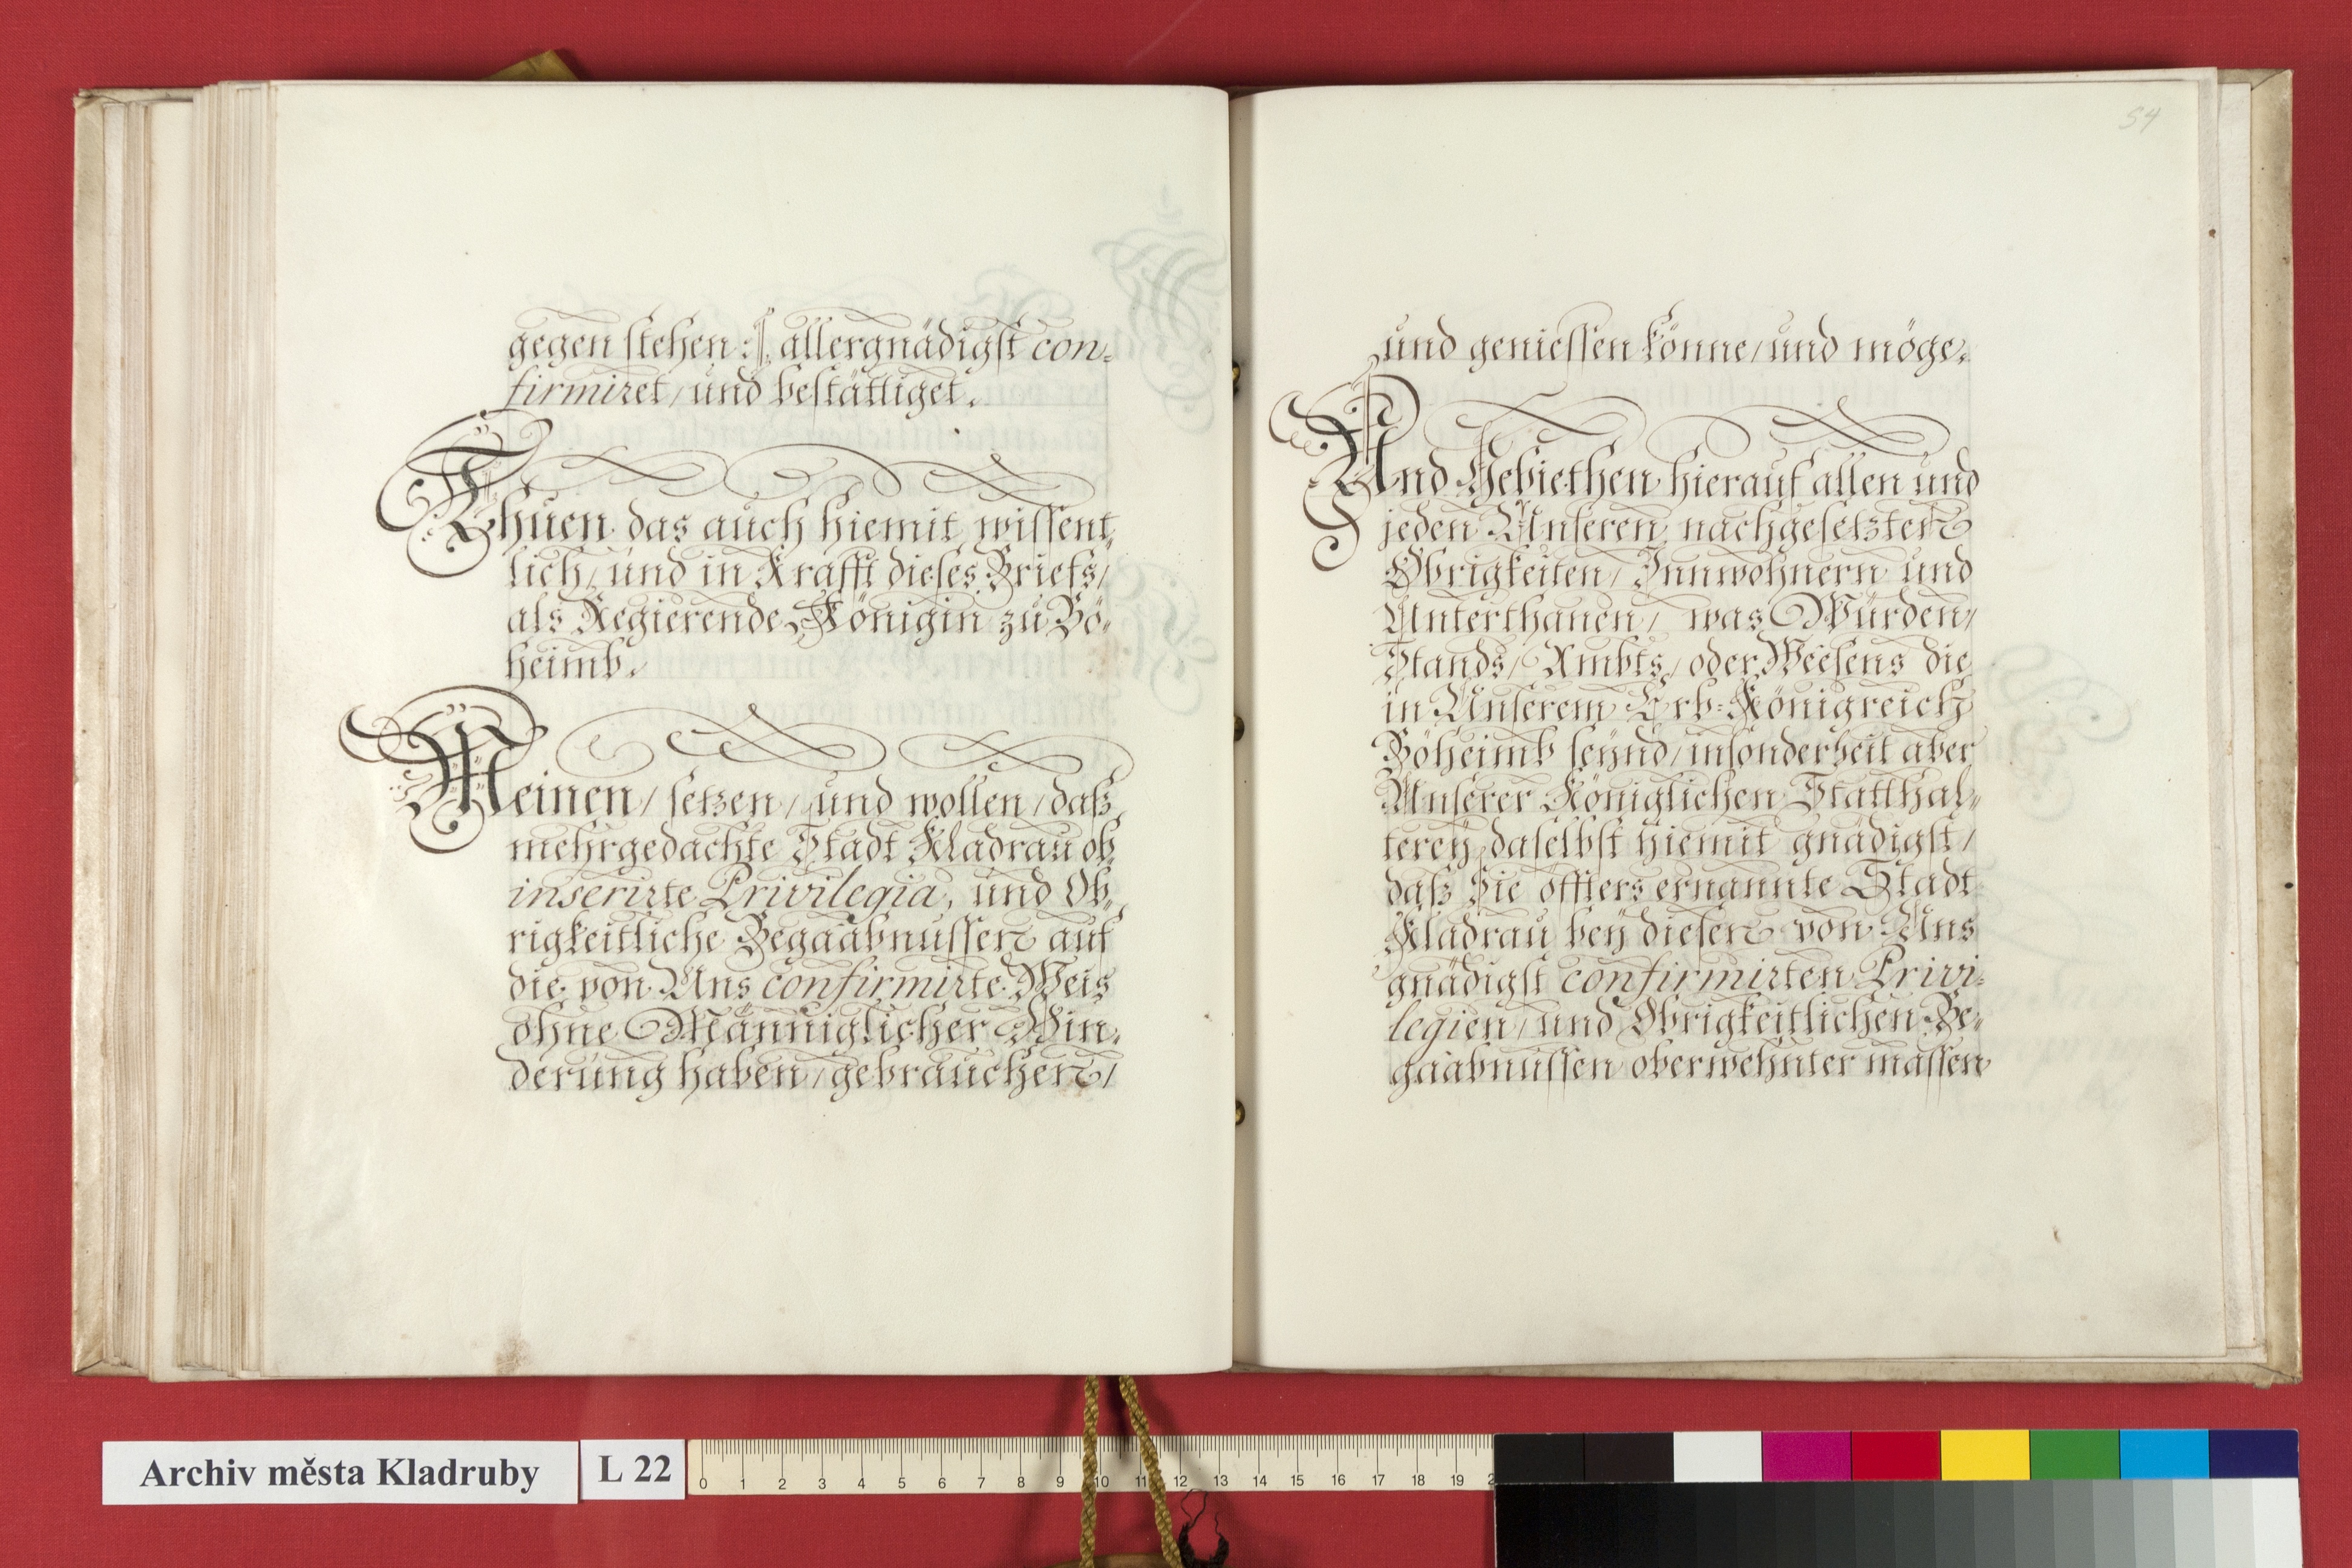 gegen stehen :/: allergnädigst con-
firmiret/ und bestättiget.
Thuen das auch hiemit wissent-
lich/ und in Krafft dieses Briefs/
als Regierende Königin zu Bö-
heimb.
Meinen/ setzen/ und wollen/ daß
mehrgedachte Stadt Kladrau ob
inserirte Privilegia, und Ob-
rigkeitliche Begaabnussen auf
die von Uns confirmirte Weis
ohne Männiglicher Hin-
derung haben/ gebrauchen/
54
und geniessen könne/ und möge.
Und Gebiethen hierauf allen und
jeden Unseren nachgesetzten
Obrigkeiten/ Innwohnern und
Unterthanen/ was Würden/
Stands/ Ambts/ oder Weesens die
in Unserem Erb-Königreich
Böheimb seynd/ insonderheit aber
Unserer Königlichen Statthal-
terey daselbst hiemit gnädigst/
daß Sie öffters ernannte Stadt
Kladrau bey diesen von Uns
gnädigst confirmirten Privi-
legien/ und Obrigkeitlichen Be-
gaabnussen oberwehnter massen
Archiv města Kladruby
L 22
0 1 2 3 4 5 6 7 8 9 10 11 12 13 14 15 16 17 18 19